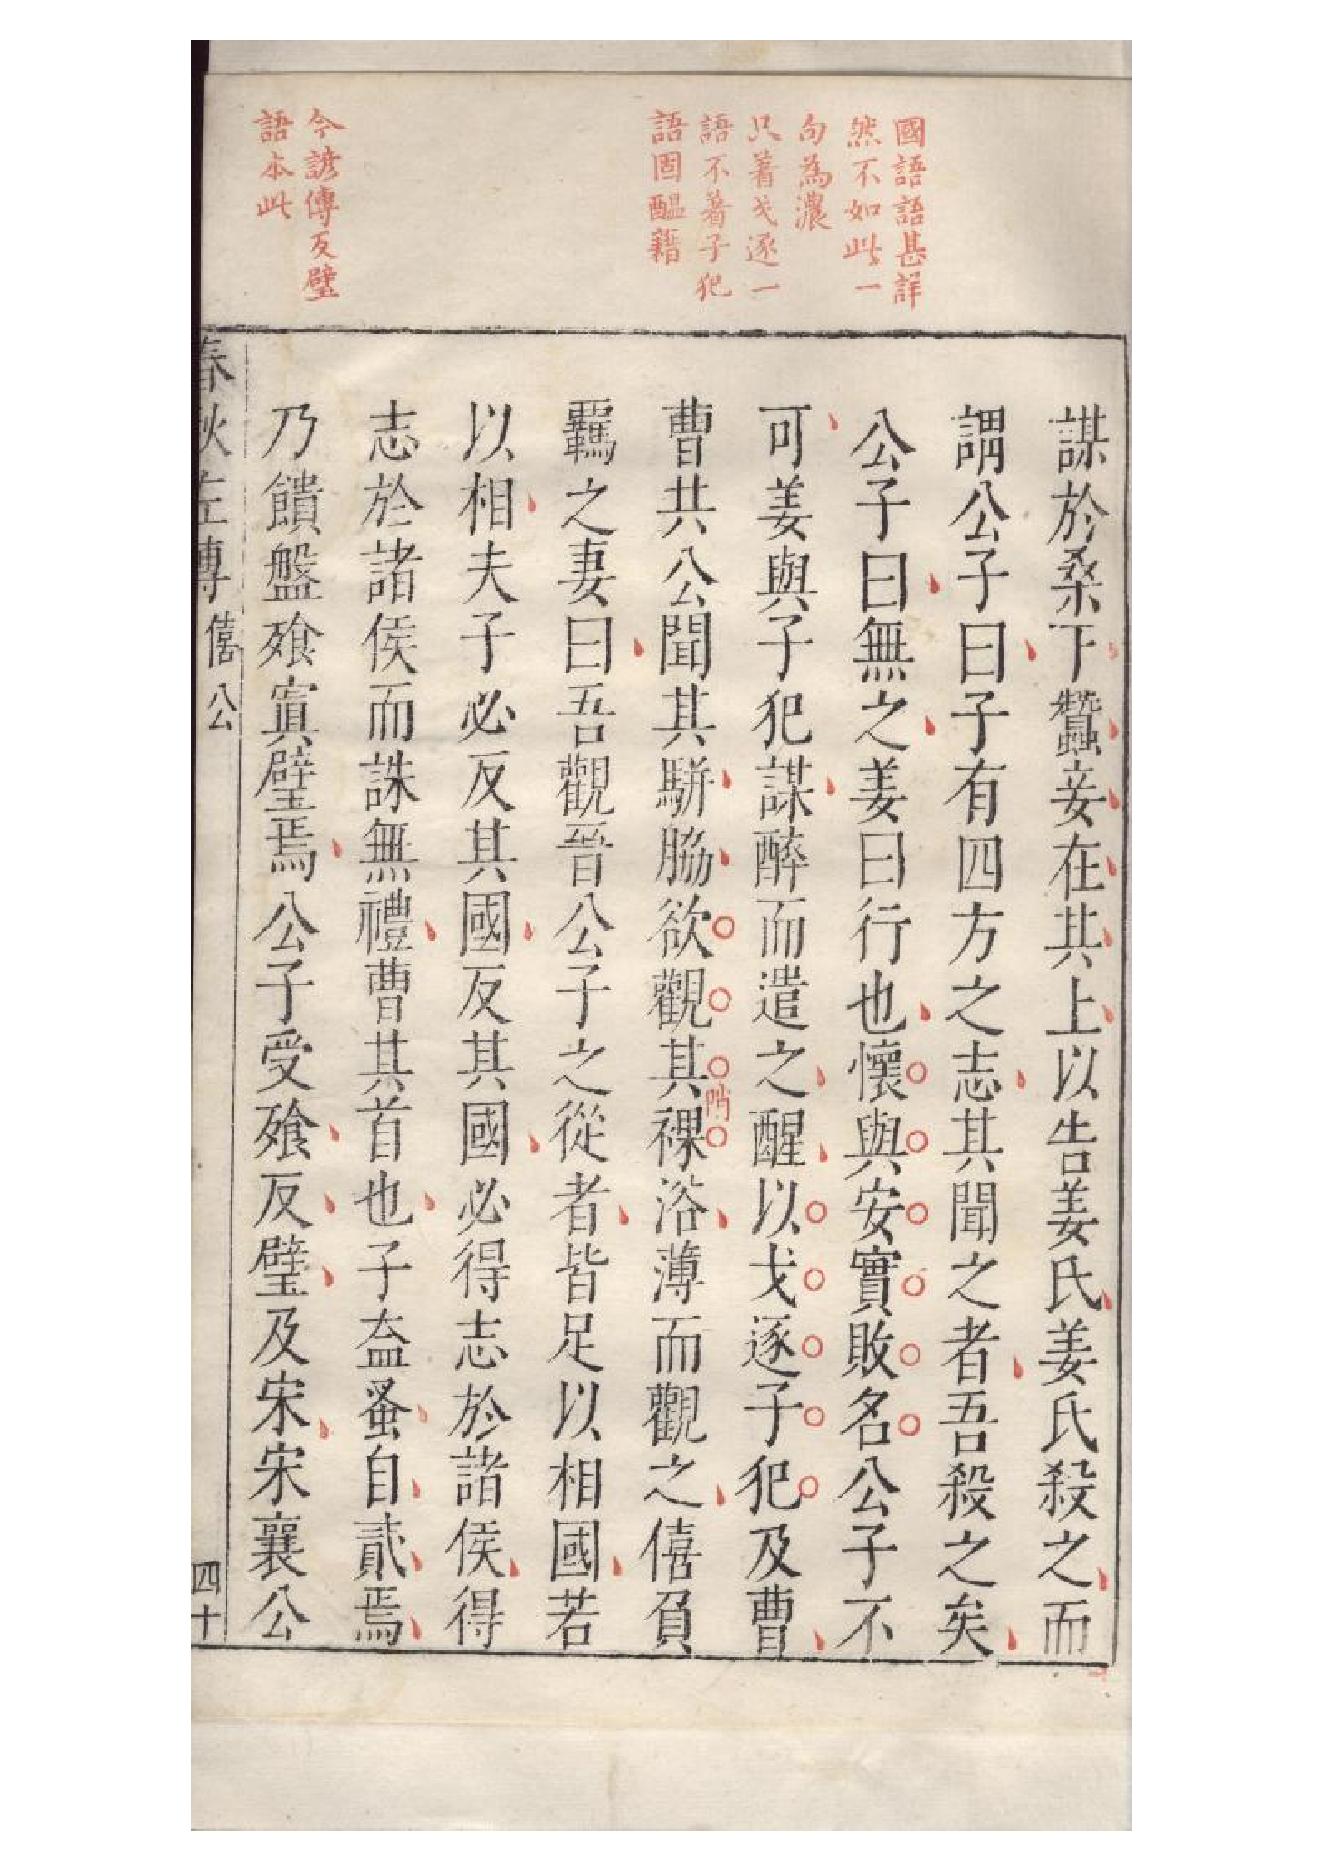 國語語甚詳
然不如此一
句為濃
只著戈逐一
語不著子犯
語固醞藉
今諺傳反璧
語本此
謀於桑下蠶妾在其上以告姜氏姜氏殺之而
謂公子曰子有四方之志其聞之者吾殺之矣
公子曰無之姜曰行也懷與安實敗名公子不
可姜與子犯謀醉而遣之醒以戈逐子犯及曹
曹共公聞其駢脇欲觀其裸浴薄而觀之僖負
羈之妻曰吾觀晉公子之從者皆足以相國若
以相夫子必反其國反其國必得志於諸侯得
志於諸侯而誅無禮曹其首也子盍蚤自貳焉
乃饋盤飧寘璧焉公子受飧反璧及宋宋襄公
春秋左傳 僖公 四十